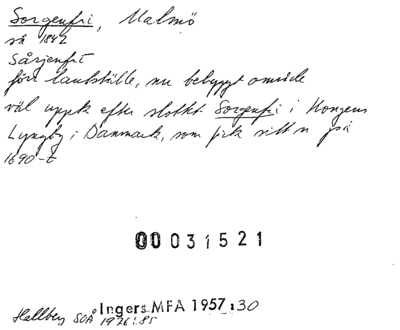 Sorgenfri, Malmö
så 1842
Sårjenfri
förr lantställe, nu bebyggt område
väl uppk efter slottet Sorgenfri i Kongens
Lyngby i Danmark, som fick sitt n på
1690-t
00031521
Ingers MFA 1957:30
Hallberg SOÅ 1976:85